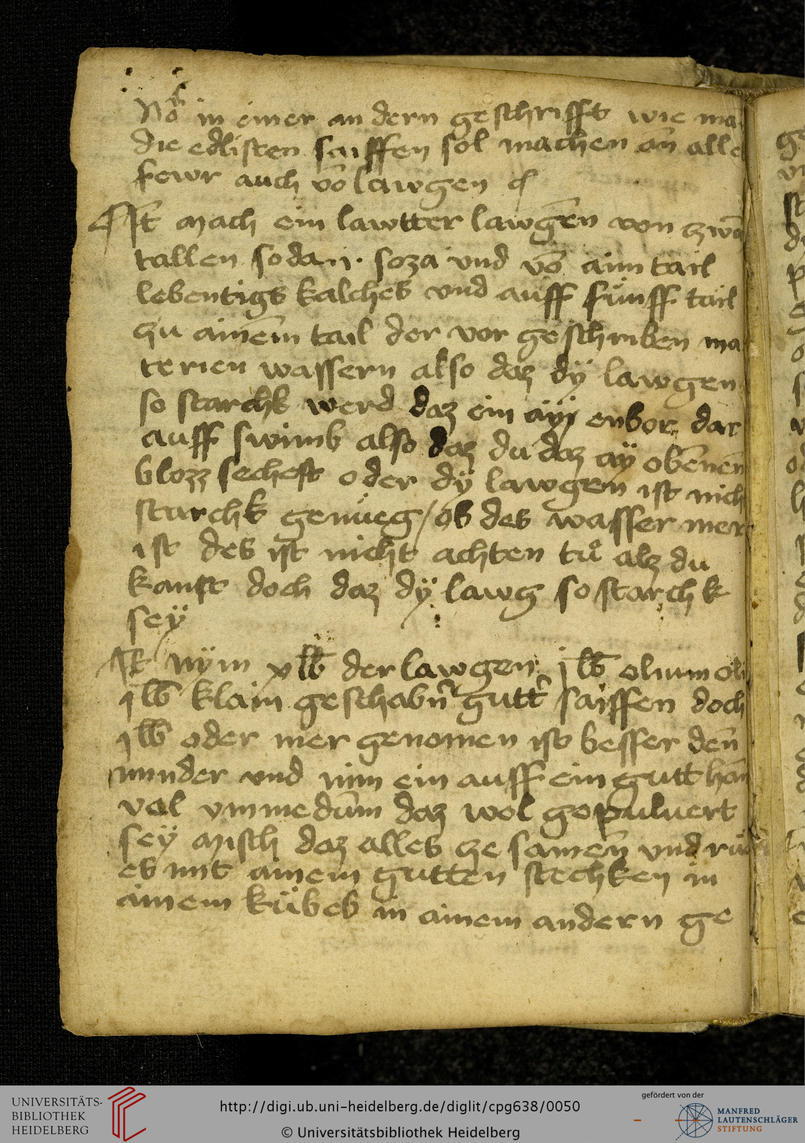 in einer andern geschrifft wie ma
die edlisten saiffen sol machen an alle
fewr auch vō lawgen
Mach ein lawtter lawgen von zwā
tallen soda .i. soza vnd vō aim tail
lebentigs kalches vnd auff fünff tail
zu ainem tail der vor geschriben ma
terien wassern also daz dÿ lawgen
so starchk werd daz ein enbor dar
auff swimb also daz du daz aÿ obenen
blozz sechest oder dÿ lawgen ist nich
starchk genueg / ob des wasser mer
ist des ist nicht achten tů alz du
kanst doch daz dÿ lawg so starchk
sey
Nÿm der lawgen olium
klain geschabn̄ saiffen doch
oder mer genomen ist besser den
minder vnd nim ein auff ein gutt
vol daz wol gepuluert
seÿ misch daz alles ze samen vnd
es mit ainem gutten stechken in
ainem kübes in ainem andern ge
UNIVERSITÄTS-
BIBLIOTHEK
HEIDELBERG
http://digi.ub.uni-heidelberg.de/diglit/cpg638/0050
© Universitätsbibliothek Heidelberg
gefördert von der
MANFRED
LAUTENSCHLÄGER
STIFTUNG